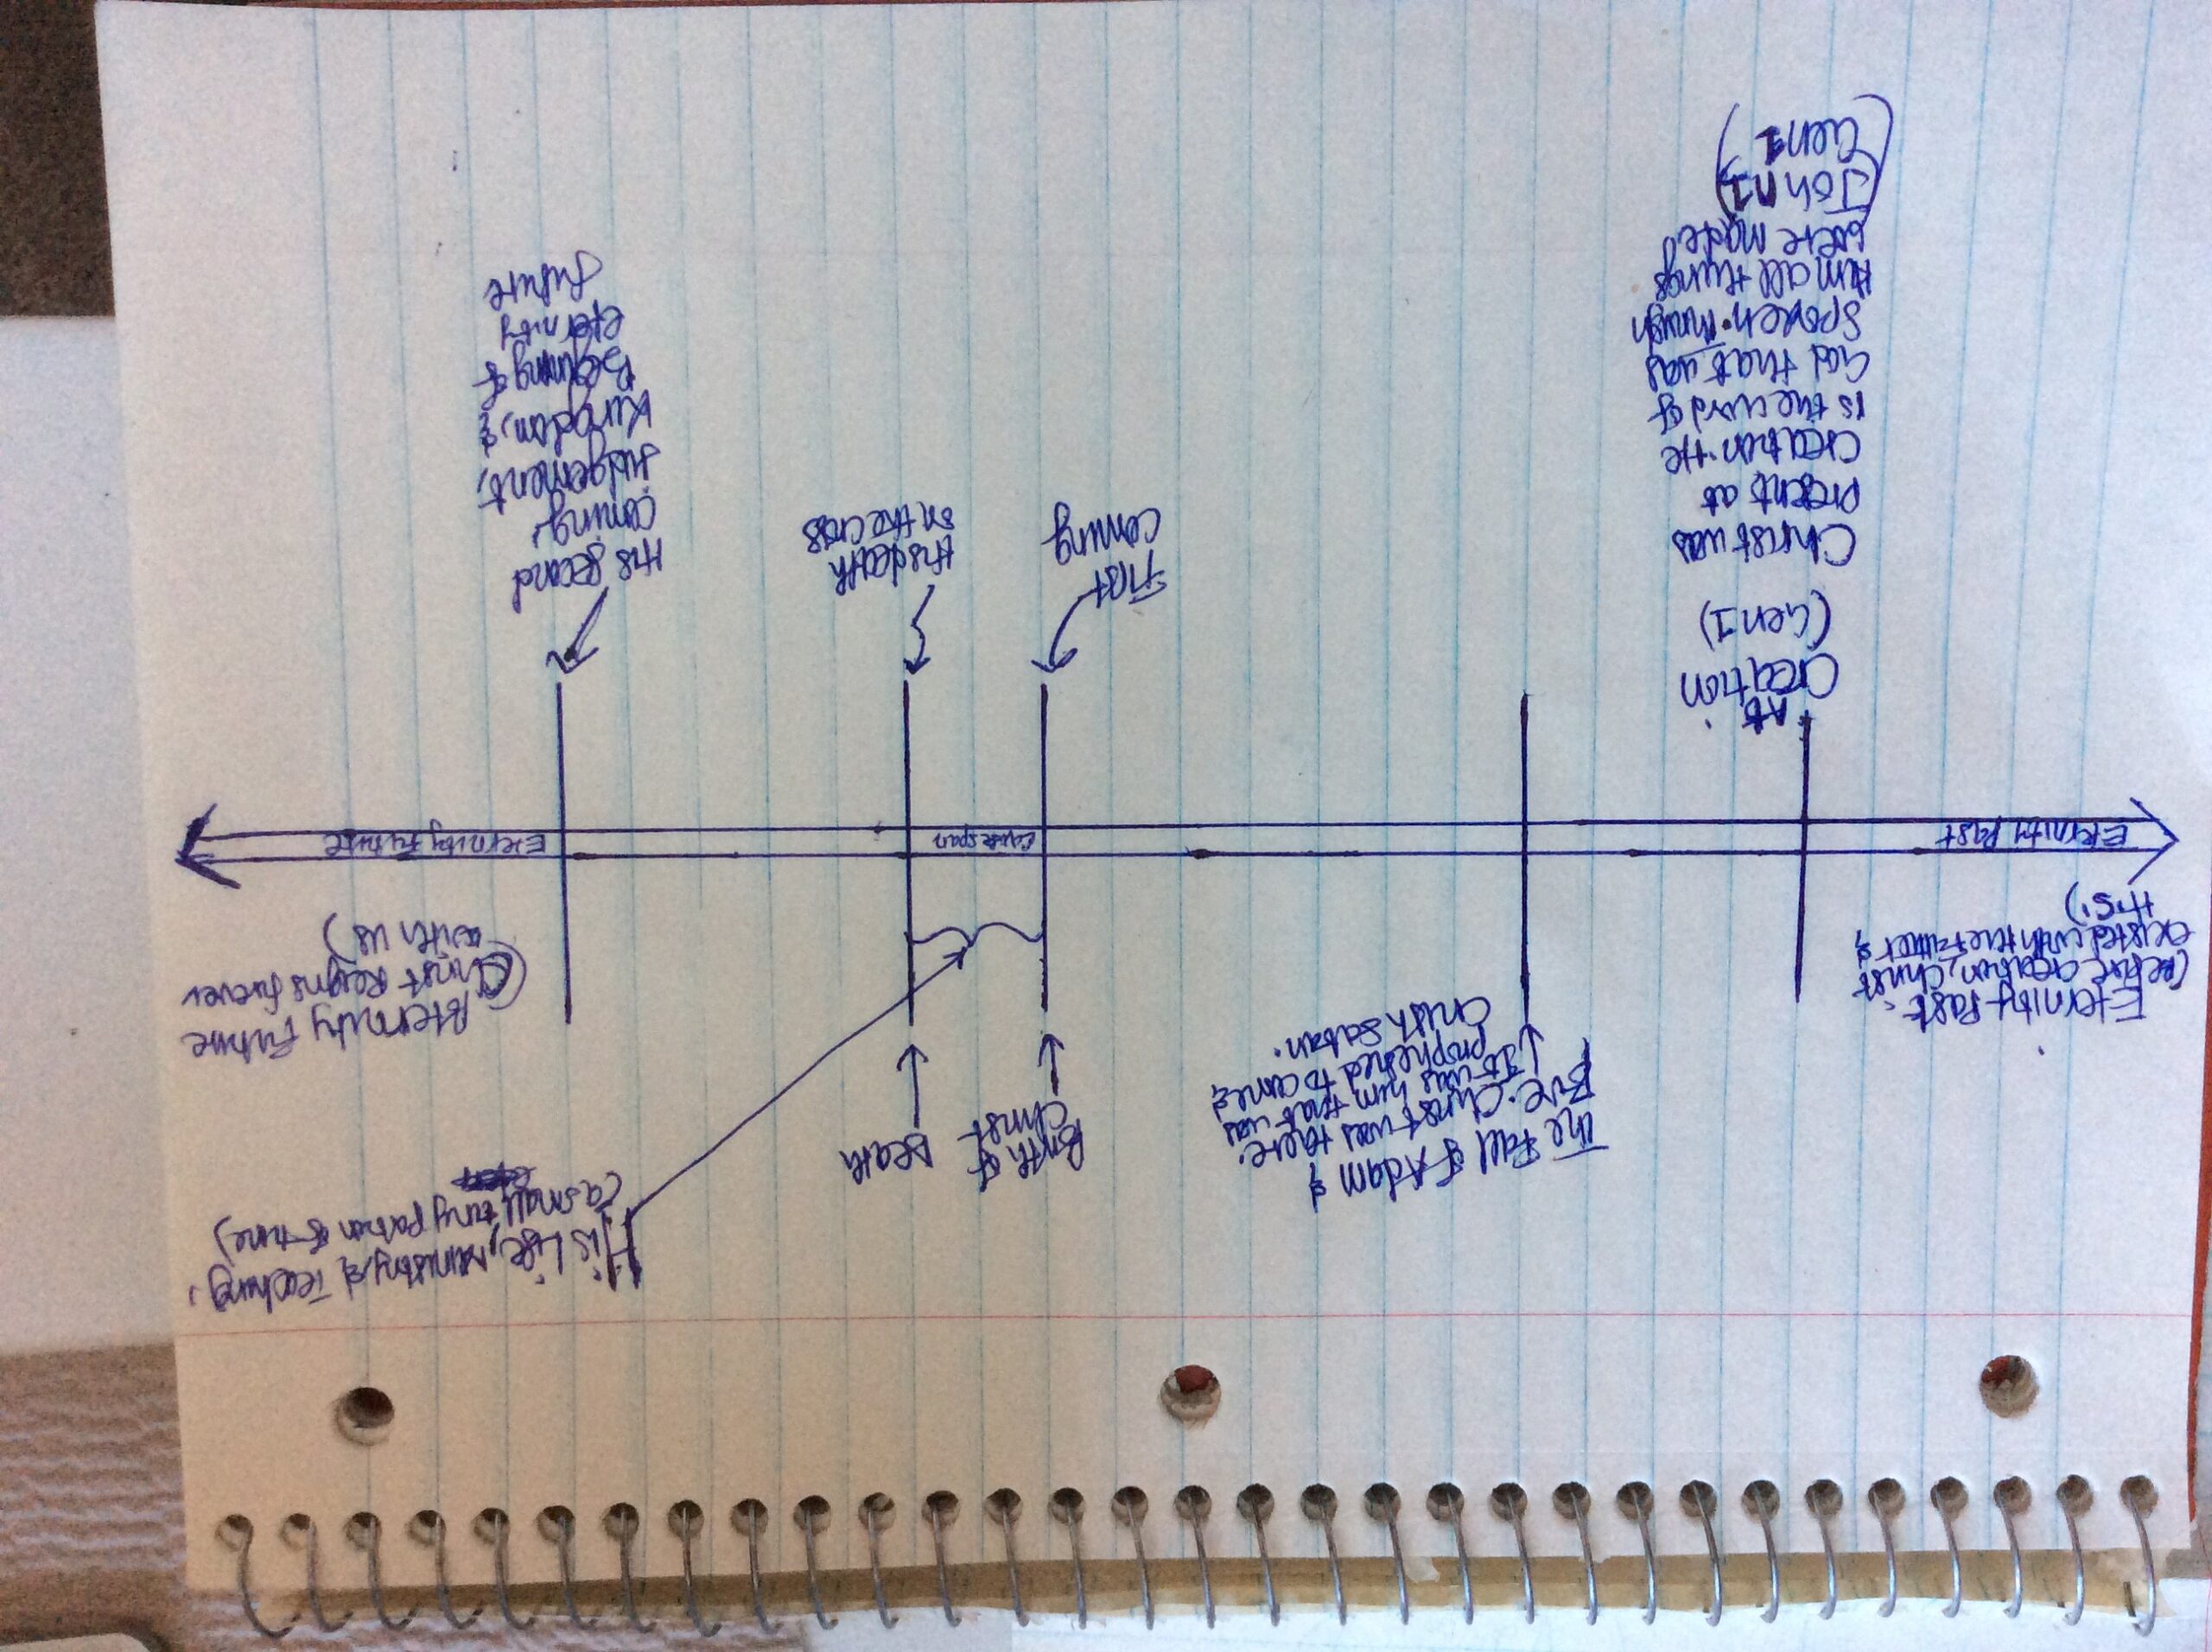 His Life, Ministry, & Teaching.
(a small tiny portion of time)
The Fall of Adam &
Eve. Christ was there.
It was him that was
prophesied to come &
crush Satan.
Birth of
Christ
Death
Eternity Past:
(Before creation, Christ
existed with the Father &
H.S.)
Eternity Future
(Christ Reigns forever
with us)
Eternity Past
span
Eternity Future
At
Creation
(Gen 1)
Christ was
present at
creation. He
is the word of
God that was
spoken. Through
Him all things
were made
(John 1)
(Gen 1)
First
Coming
His death
on the cross
His second
coming,
Judgement,
Kingdom, &
Beginning of
eternity
future